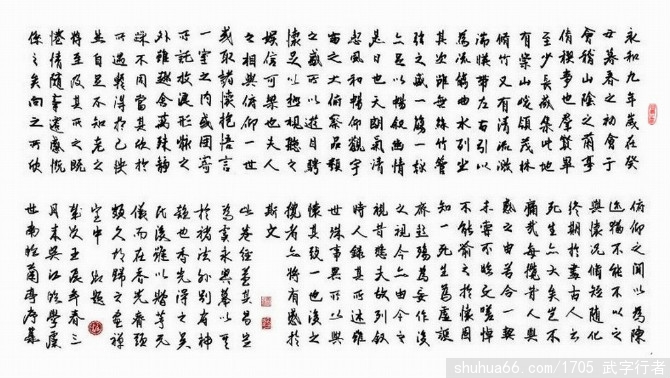 永和九年歲在癸
丑暮春之初會于
會稽山陰之蘭亭
脩稧事也群賢畢
至少長咸集此地
有崇山峻領茂林
脩竹又有清流激
湍暎帶左右引以
為流觴曲水列坐
其次雖無絲竹管
弦之盛一觴一詠
亦足以暢敘幽情
是日也天朗氣清
惠風和暢仰觀宇
宙之大俯察品類
之盛所以遊目騁
懷足以極視聽之
娛信可樂也夫人
之相與俯仰一世
或取諸懷抱悟言
一室之內或因寄
所託放浪形骸之
外雖趣舍萬殊靜
躁不同當其欣於
所遇暫得於己怏
然自足不知老之
將至及其所之既
惓情隨事遷感慨
係之矣向之所欣
俛仰之間以為陳
迹猶不能不以之
興懷況脩短隨化
終期於盡古人云
死生亦大矣豈不
痛哉每攬昔人興
感之由若合一契
未嘗不臨文嗟悼
不能喻之於懷固
知一死生為虛誕
齊彭殤為妄作後
之視今亦由今之
視昔悲夫故列敘
時人錄其所述雖
世殊事異所以興
懷其致一也後之
攬者亦將有感於
斯文
歲次壬辰年春三
世南臨蘭亭序
shuhua66.com/1705 武字行者